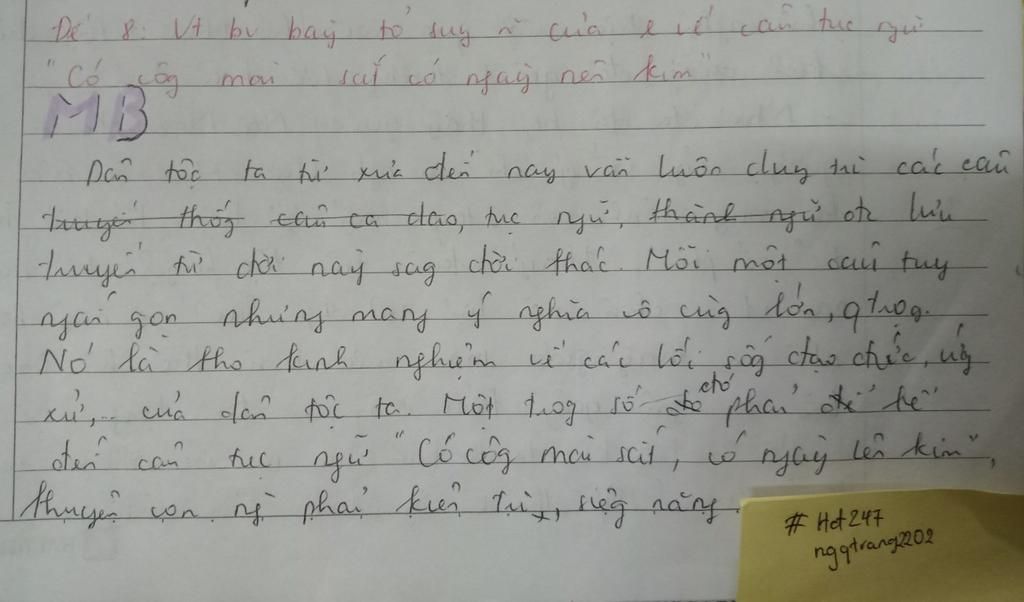 Đề 8: Vt bv bày tỏ suy n của e về câu tục ngữ
"Có côg mài sắt có ngày nên kim"
MB
Dân tộc ta từ xưa đến nay vẫn luôn duy trì các câu
truyền thốg câu ca dao, tục ngữ, thành ngữ đc lưu
truyền từ đời này sag đời khác. Mỗi một câu tuy
ngắn gọn nhưng mang ý nghĩa vô cùg lớn, qtrọg.
Nó là kho kinh nghiệm về các lối sốg đạo đức, ứg
xử,... của dân tộc ta. Một trog số đó phải để kể
đến câu tục ngữ "Có côg mài sắt, có ngày lên kim",
khuyên con ng phải kiên trì, siêg năng.
# Hct247
ngqtrang2202